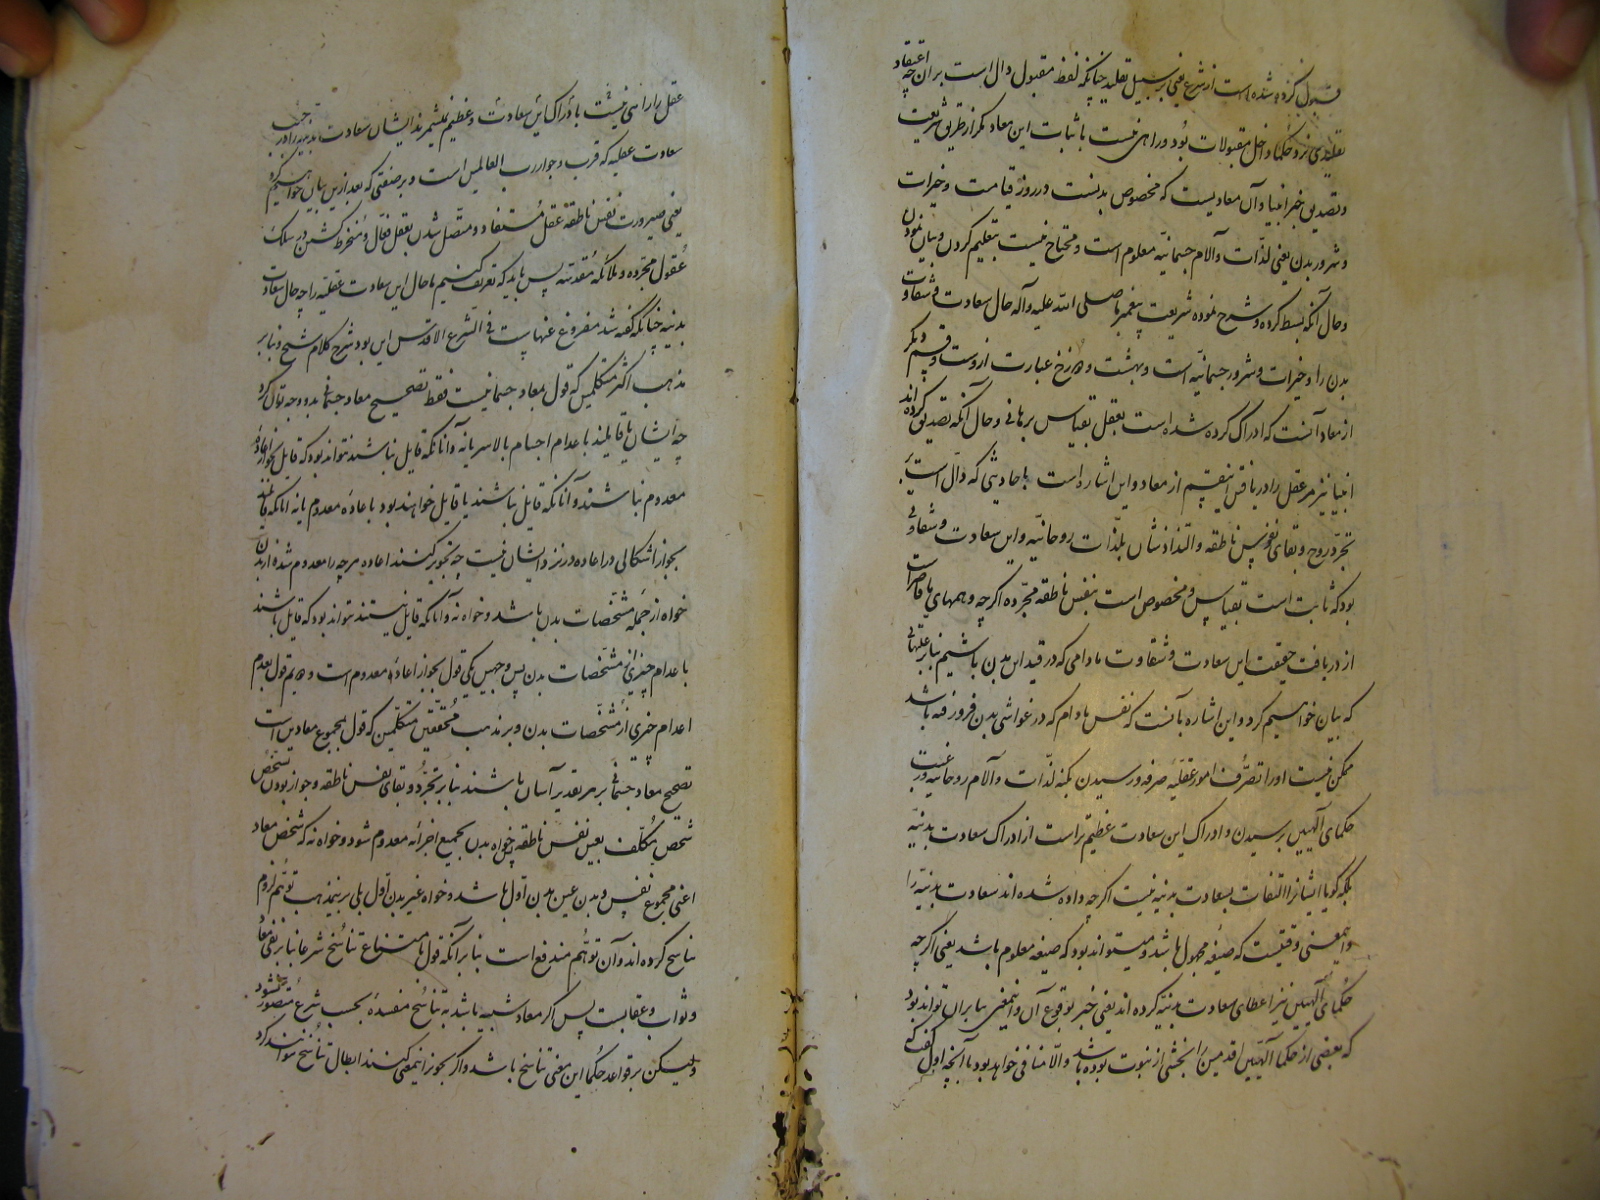 قبول کرده شده است از شرع یعنی بر سبیل تقلید چنانکه لفظ مقبول دال است بر آن چه اعتقاد
تقلیدی نزد حکما داخل مقبولات بود و راهی نیست باثبات این معاد مکر از طریق شریعت
و تصدیق خبر انبیا و آن معادیست که مخصوص بدنست در روز قیامت و خیرات
و شرور بدن یعنی لذّات و آلام جسمانیّه معلوم است و محتاج نیست بتعلیم کردن و بیان نمودن
و حال آنکه بسط کرده و شرح نموده شریعت پیغمبر ما صلی الله علیه و آله حال سعادت و شقاوت
بدن را و خیرات و شرور جسمانیّه است و بهشت و دوزخ عبارت ازوست و قسم دیکر
از معاد آنست که ادراک کرده شده است بعقل بقیاس برهانی و حال آنکه تصدیق کرده‌اند
انبیا نیز مر عقل را در یافتن اینقسم از معاد و این اشاره است باحادیثی که دالّ است بر
تجرّد روح و بقای نفوس ناطقه و التذاذشان بلذّات روحانیّه و این سعادت و شقاوتی
بود که ثابت است بقیاس و مخصوص است بنفس ناطقه مجرّده اکرچه وهمهای ما قاصر است
از دریافت حقیقت این سعادت و شقاوت مادامی که در قید این بدن باشیم بنابر علتهائی
که بیان خواهیم کرد و این اشاره بآنست که نفس مادام که در غواشی بدن فرو رفته باشد
ممکن نیست او را تصرّف امور عقلیّه صرفه و رسیدن بکنه لذّات و آلام روحانیّه و رغبت
حکمای آلهیین برسیدن و ادراک این سعادت عظیم‌تر است از ادراک سعادت بدنیّه
بلکه کویا ایشانرا التفات بسعادت بدنیه نیست اکرچه داده شده‌اند سعادت بدنیّه را
و اینمعنی وقتیست که صیغه مجهول باشد و میتواند بود که صیغه معلوم باشد یعنی اکرچه
حکمای آلهیین نیز اعطای سعادت بدنیّه کرده‌اند یعنی خبر بوقوع آن و اینمعنی بنا بر آن تواند بود
که بعضی از حکما آلهیین اقدمین را بخشی از نبوت بوده باشد و الّا منافی خواهد بود با آنچه اول کفت که
عقل را راهی نیست بادراک این سعادت و عظیم نمیشمرند ایشان سعادت بدنیه را در جنب
سعادت عقلیه که قرب و جوار رب العالمین است و بر صفتی که بعد ازین بیان خواهیم کرد
یعنی صیرورت نفس ناطقه عقل مستفاد و متّصل شدن بعقل فعّال و منخرط کشتن در سلک
عقول مجرّده و ملائکه مقدّسه پس باید که تعریف کنیم ما حال این سعادت عقلیّه را چه حال سعادت
بدنیه چنانکه کفته شد مفروغ عنهاست فی الشرع الاقدس این بود شرح کلام شیخ و بنا بر
مذهب اکثر متکلمین که قول بمعاد جسمانیست فقط تصحیح معاد جسمانی بدو وجه توان کرد
چه ایشان یا قایلند باعدام اجسام بالاسر یا نه و آنانکه قایل نباشند تواند بود که قایل بجواز اعاده
معدوم نباشند و آنانکه قایل باشند یا قایل خواهند بود باعاده معدوم یا نه آنانکه قائلند
بجواز اشکالی در اعاده در نزد ایشان نیست چه تجویز کنند اعاده هرچه را معدوم شده از بدن
خواه از جمله مشخّصات بدن باشد و خواه نه و آنانکه قایل نیستند تواند بود که قایل باشند
باعدام چیزی از مشخّصات بدن پس وجهین یکی قول بجواز اعاده معدوم است و دویم قول بعدم
اعدام چیزی از مشخّصات بدن و بر مذهب محقّقین متکلّمین که قول بمجموع معادین است
تصحیح معاد جسمانی بر هر تقدیر آسان باشد بنابر تجرّد و بقای نفس ناطقه و جواز بودن تشخّص
شخص مکلّف بعین نفس ناطقه خواه بدن بجمیع اجزائه معدوم شود و خواه نه که شخص معاد
اعنی مجموع نفس و بدن عین بدن اول باشد و خواه غیر بدن اول بلی بر اینمذهب توهّم لزوم
تناسخ کرده‌اند و آن توهّم مندفع است بنا بر آنکه قول بامتناع تناسخ شرعا بنا بر نفی معاد
و ثواب و عقابست پس اکر معاد شبیه باشد بتناسخ مفسده بحسب شرع متصوّر نشود
ولیکن بر قواعد حکما این معنی تناسخ باشد و اکر تجویز اینمعنی کنند ابطال تناسخ نتوانند کرد